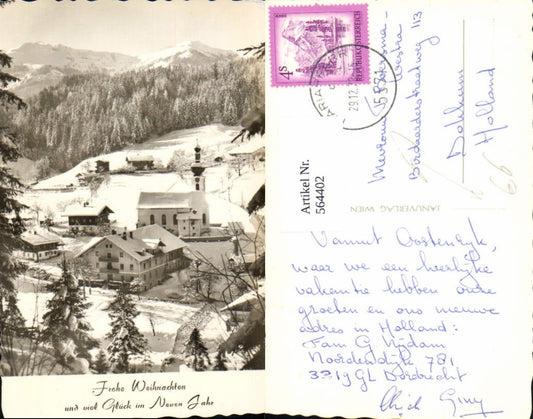 Frohe Weihnachten
und viel Glück im Neuen Jahr
4S
REPUBLIK ÖSTERREICH
29.12.
5771
Artikel Nr.
564402
JANUVERLAG WIEN
Mevrouw
Westra
Birdaarderstraatweg 113
Dokkum
Holland
66
Vanuit Oostenryk,
waar we een heerlyke
vakantie hebben onze
groeten en ons nieuwe
adres in Holland:
Fam G Nydam
Noordendijk 781
3319 GL Dordrecht
Giny